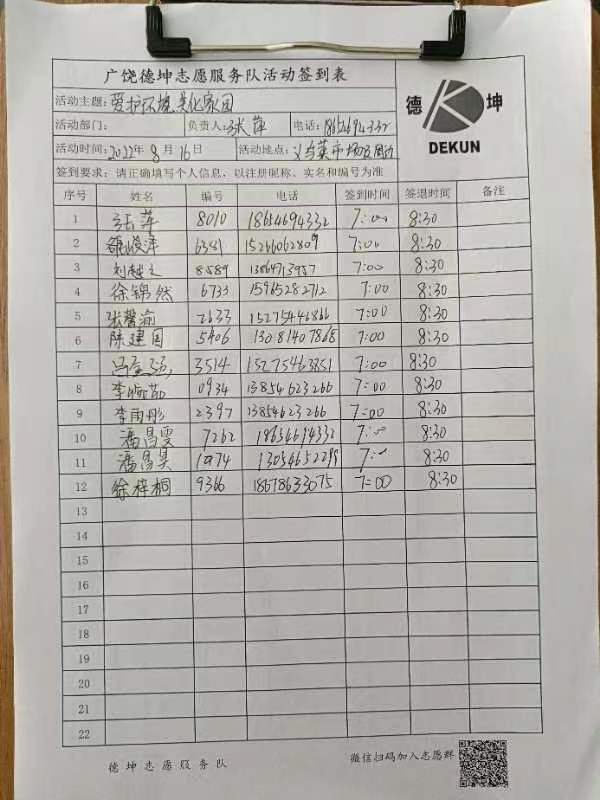 广饶德坤志愿服务队活动签到表
德 坤
DEKUN
活动主题：爱护环境 美化家园
活动部门： 负责人：张萍 电话：18654694332
活动时间：2022年8月16日 活动地点：菜市场及周边
签到要求：请正确填写个人信息，以注册昵称、实名和编号为准
序号 姓名 编号 电话 签到时间 签退时间 备注
1 张萍 8010 18654694332 7:00 8:30
2 6351 15266062809 7:00 8:30
3 刘越之 8589 7:00 8:30
4 徐锦然 6733 15965282712 7:00 8:30
5 张馨渝 2633 15275446866 7:00 8:30
6 陈建国 5406 13081407868 7:00 8:30
7 3514 15275463851 7:00 8:30
8 李昕茹 0934 13854623266 7:00 8:30
9 李雨彤 2397 13854623266 7:00 8:30
10 潘昌雯 7262 18654694332 7:00 8:30
11 潘昌昊 1074 13054652299 7:00 8:30
12 徐梓桐 9366 18678633075 7:00 8:30
13
14
15
16
17
18
19
20
21
22
德坤志愿服务队 微信扫码加入志愿群